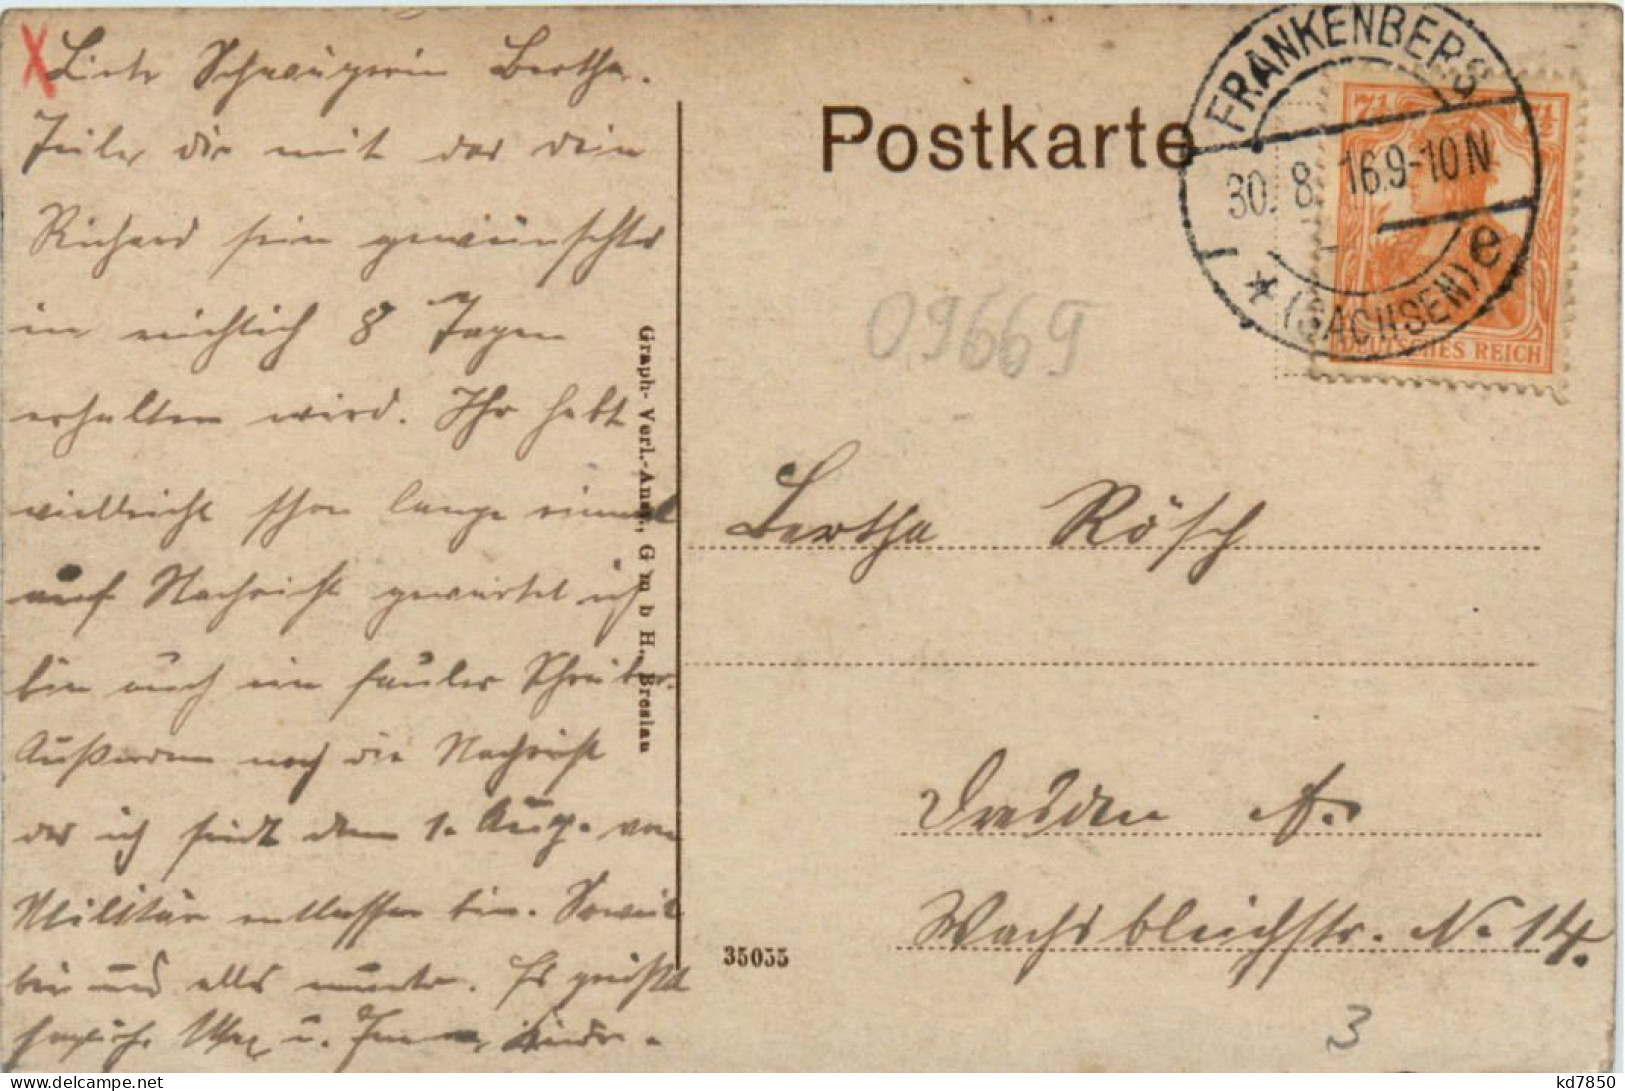 Liebe Schwägerin Bertha.
Teile dir mit das dein
Richard sein gewünschtes
in reichlich 8 Tagen
erhalten wird. Ihr habt
vielleicht schon lange einmal
auf Nachricht gewartet ich
bin auch ein fauler Schreiber.
Außerdem noch die Nachricht
das ich seit dem 1. Aug. von
Militär entlassen bin. Soweit
bin und alles munter. Es grüßt
herzlich Max u. Kinder.
Postkarte
FRANKENBERG
30. 8. 16. 9-10 N
* (SACHSEN) e
7½ 7½
DEUTSCHES REICH
09669
Graph. Verl.-Anst., G m b H., Breslau
Bertha Rösch
Dresden A.
Wachsbleichstr. No 14.
35055
3
kd7850